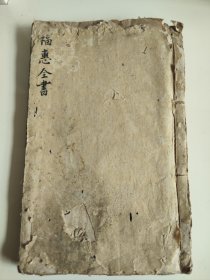 福惠全書